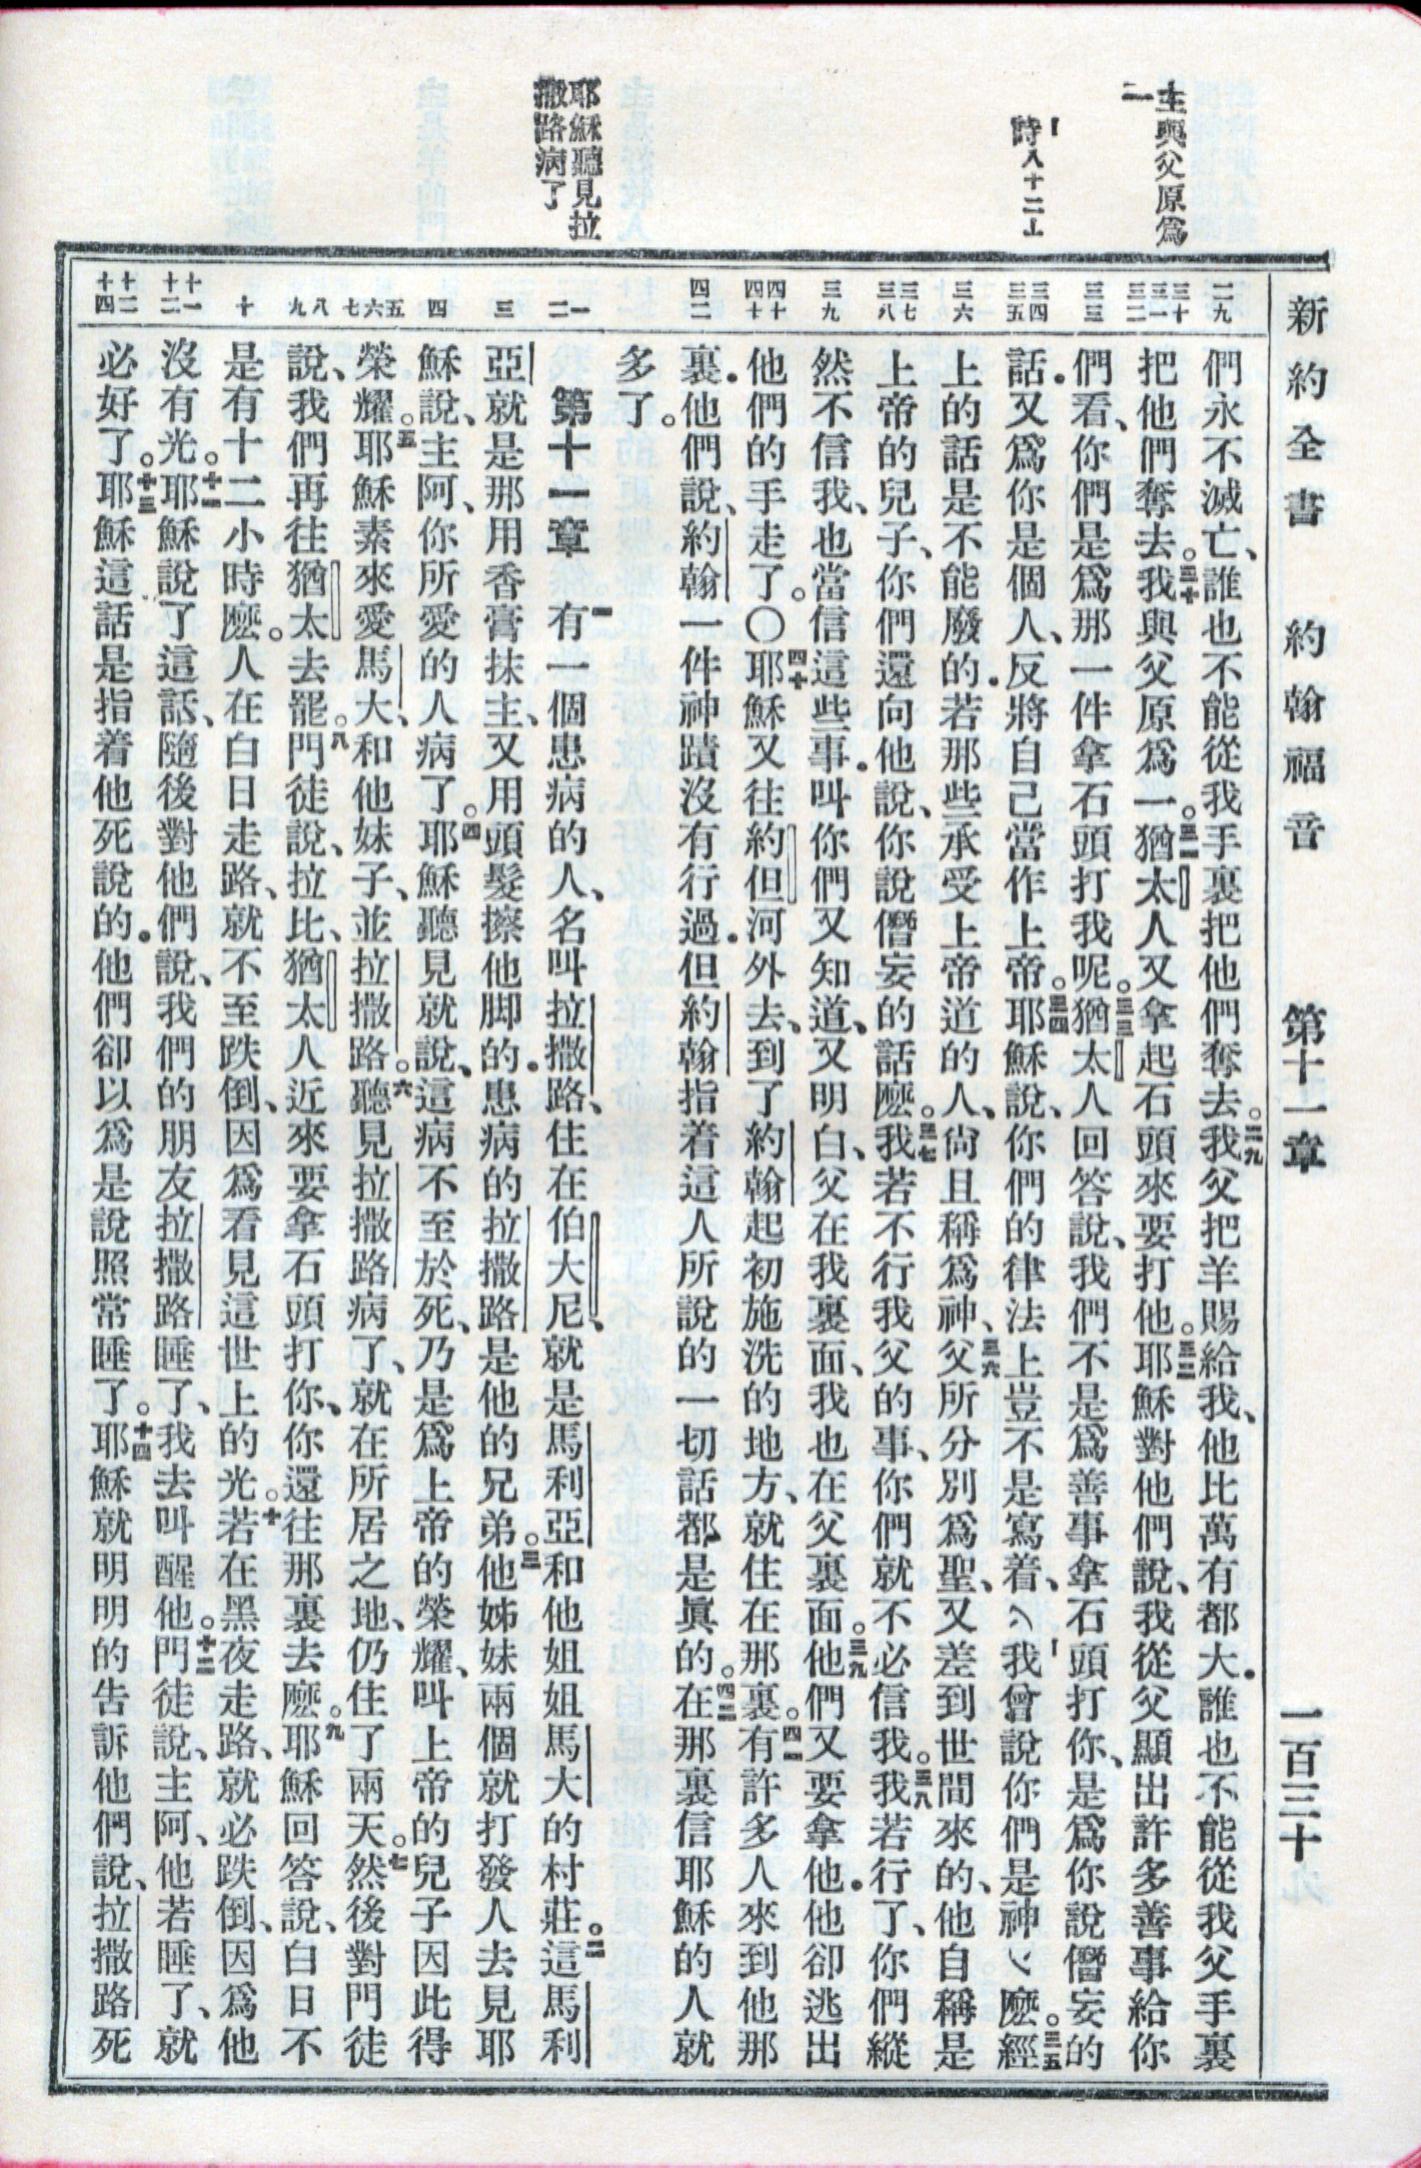 新約全書　約翰福音　第十一章　一百三十
主與父原爲
一
詩八十二上
耶穌聽見拉
撒路病了
二九
三十
三一
三二
三三
三四
三五
三六
三七
三八
三九
四十
四十
四二
一
二
三
四
五
六
七
八
九
十
十一
十二
十三
十四
們永不滅亡、誰也不能從我手裏把他們奪去。二九我父把羊賜給我、他比萬有都大．誰也不能從我父手裏
把他們奪去。三十我與父原爲一。三一猶太人又拿起石頭來要打他。三二耶穌對他們說、我從父顯出許多善事給你
們看、你們是爲那一件拿石頭打我呢。三三猶太人回答說、我們不是爲善事拿石頭打你、是爲你說僭妄的
話．又爲你是個人、反將自己當作上帝。三四耶穌說、你們的律法上豈不是寫着、我曾說你們是神麼。三五經
上的話是不能廢的．若那些承受上帝道的人、尙且稱爲神、三六父所分別爲聖、又差到世間來的、他自稱是
上帝的兒子、你們還向他說、你說僭妄的話麼。三七我若不行我父的事、你們就不必信我。三八我若行了、你們縱
然不信我、也當信這些事．叫你們又知道、又明白、父在我裏面、我也在父裏面。三九他們又要拿他．他卻逃出
他們的手走了。〇四十耶穌又往約但河外去、到了約翰起初施洗的地方、就住在那裏。四一有許多人來到他那
裏．他們說、約翰一件神蹟沒有行過．但約翰指着這人所說的一切話都是眞的。四二在那裏信耶穌的人就
多了。
第十一章　一有一個患病的人、名叫拉撒路、住在伯大尼、就是馬利亞和他姐姐馬大的村莊。二這馬利
亞就是那用香膏抹主、又用頭髮擦他脚的．患病的拉撒路是他的兄弟。三他姊妹兩個就打發人去見耶
穌說、主阿、你所愛的人病了。四耶穌聽見就說、這病不至於死、乃是爲上帝的榮耀、叫上帝的兒子因此得
榮耀。五耶穌素來愛馬大、和他妹子、並拉撒路。六聽見拉撒路病了、就在所居之地、仍住了兩天。七然後對門徒
說、我們再往猶太去罷。八門徒說、拉比、猶太人近來要拿石頭打你、你還往那裏去麼。九耶穌回答說、白日不
是有十二小時麼。人在白日走路、就不至跌倒、因爲看見這世上的光。十若在黑夜走路、就必跌倒、因爲他
沒有光。十一耶穌說了這話、隨後對他們說、我們的朋友拉撒路睡了、我去叫醒他。十二門徒說、主阿、他若睡了、就
必好了。十三耶穌這話是指着他死說的．他們卻以爲是說照常睡了。十四耶穌就明明的告訴他們說、拉撒路死